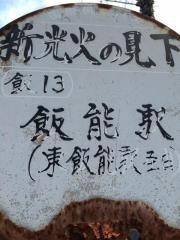 新光火の見下
飯13
飯能駅
(東飯能駅